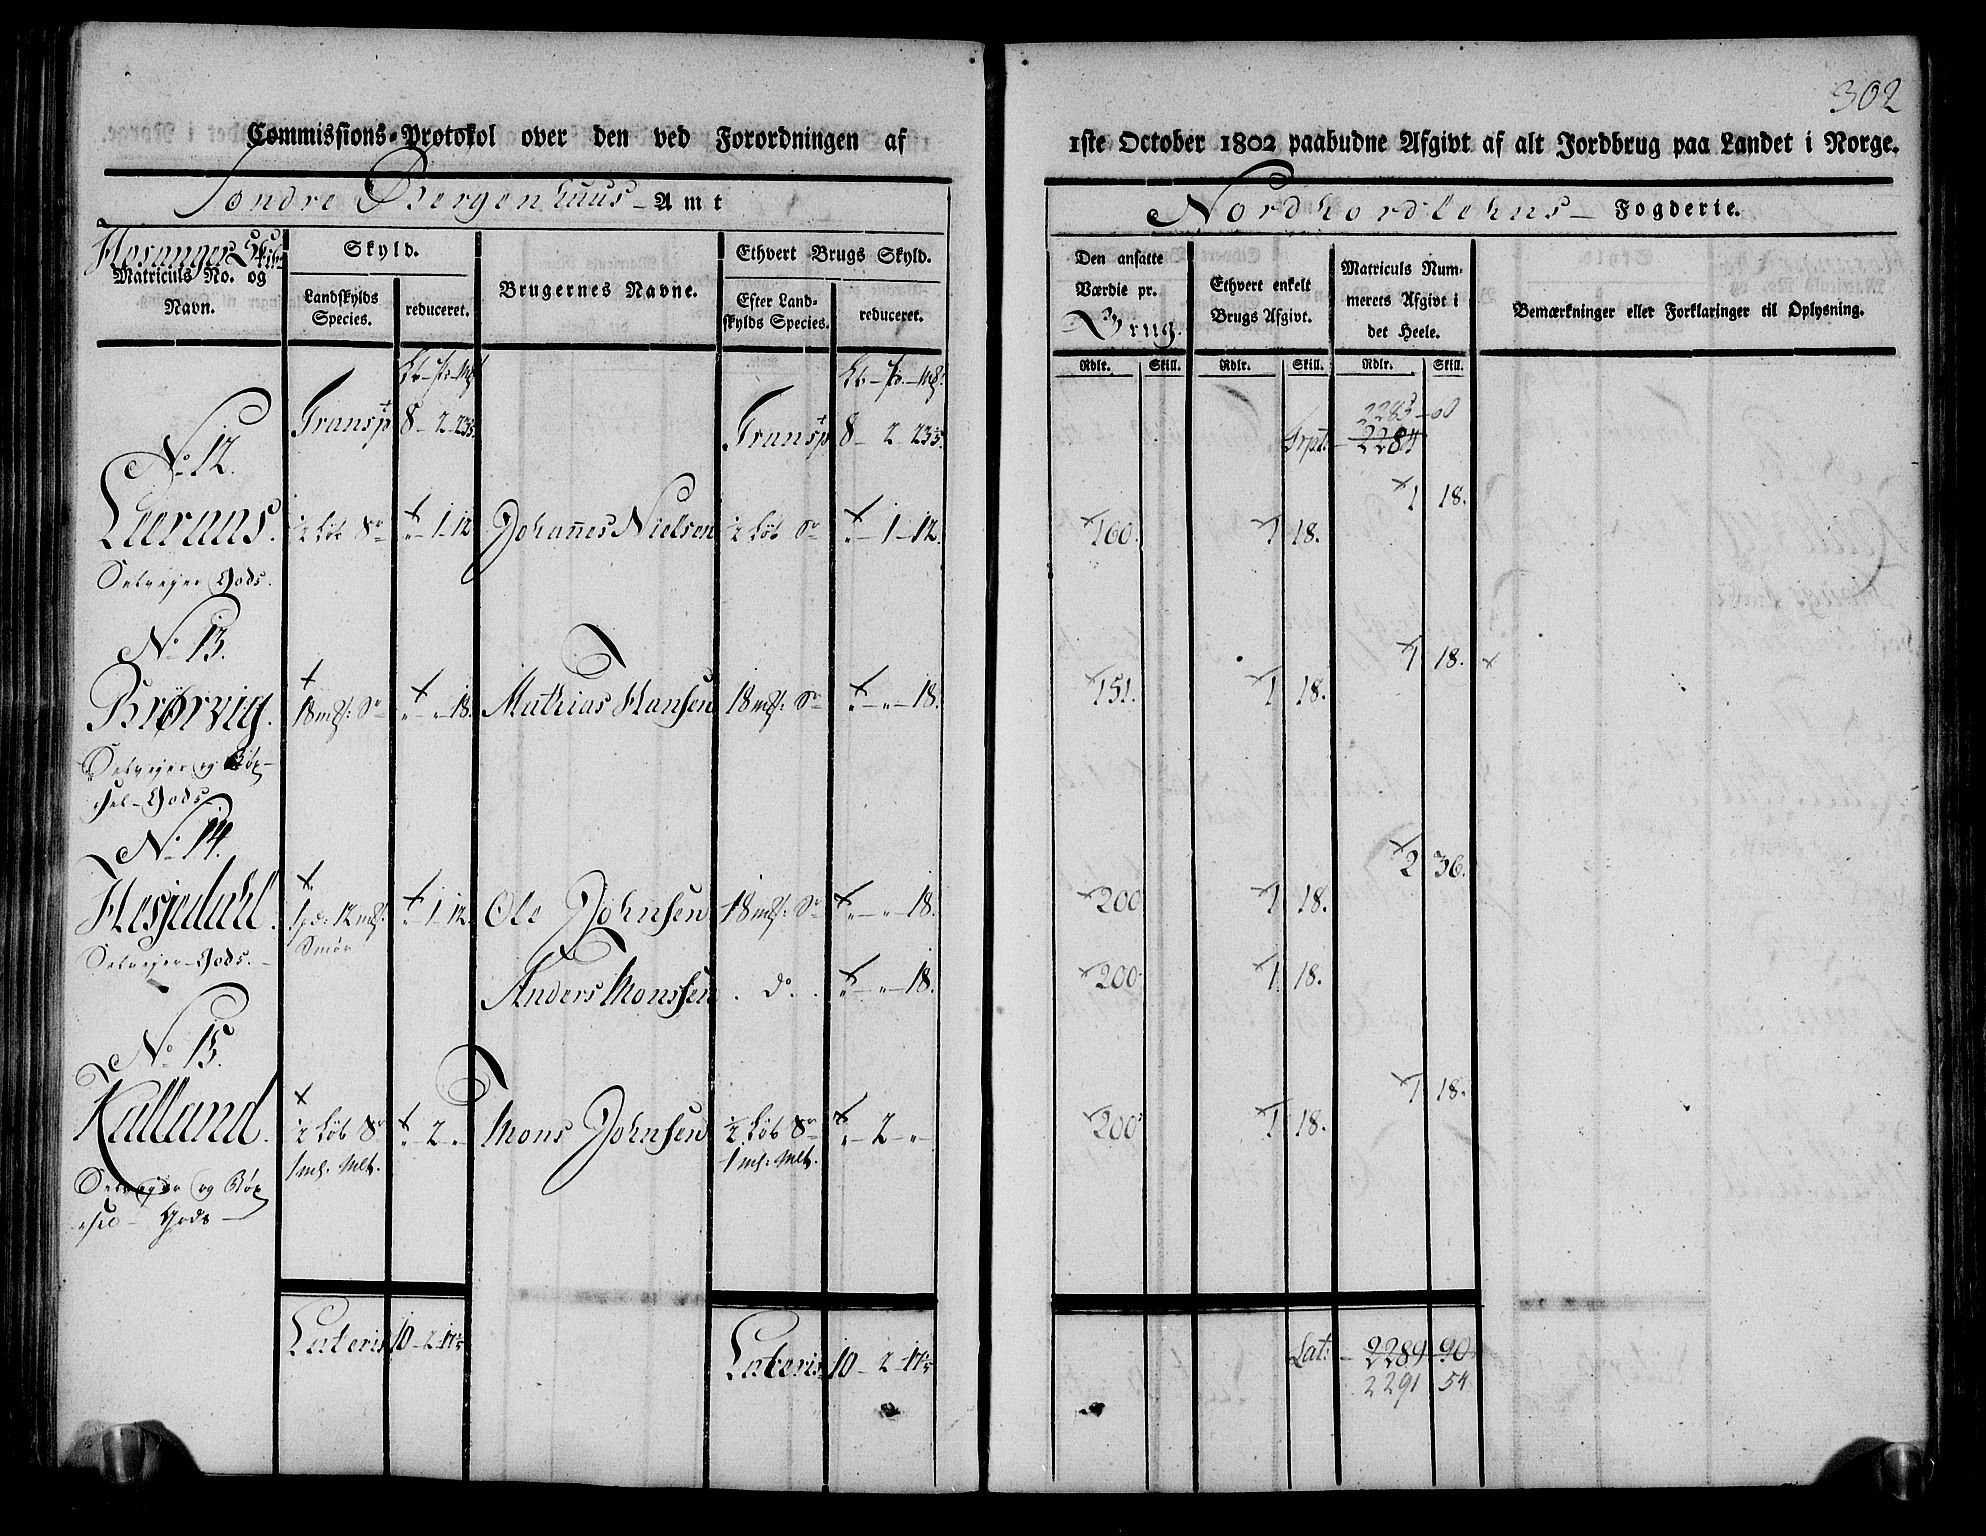 302
Commissions-Protokol over den ved Forordningen af 1ste October 1802 paabudne Afgivt af alt Jordbrug paa Landet i Norge.
Söndre Bergenhuus Amt
Nordhordlehns Fogderie.
Hosanger Skibr
Matriculs No. og Navn.
Skyld.
Landskylds Species.
reduceret.
Brugernes Navne.
Ethvert Brugs Skyld.
Efter Landskylds Species.
reduceret.
Den ansatte Værdie pr. Brug.
Ethvert enkelt Brugs Afgivt.
Matriculs Nummerets Afgivt i det Heele.
Bemærkninger eller Forklaringer til Oplysning.
Rdlr. Skill. Rdlr. Skill. Rdlr. Skill.
Transp 8 - 2 - 23 Transp 8 - 2 - 23 Trpt. 2283 - 60
2284
No. 12.
1 18.
½ Løb Sr " 1 - 12 Johannes Nielsen ½ Løb Sr " - 1 - 12. 160. 1 18.
Selveyer Gods.
No. 13.
1 18.
Brørvig. 18 mk: Sr " - " - 18. Mathias Hansen 18 mk: Sr " - " - 18. 151. 1 18.
Selveyer og Bøx-
sel-Gods
No. 14.
2 36.
Hesjedahl. 1 pd: 12 mk: " 1 - 12. Ole Johnsen 18 mk: Sr " - " - 18. 200 1 18.
Smør
Selveyer-Gods.
Anders Monssen do. " - " - 18. 200 1 18.
No. 15.
1 18.
Kalland. ½ Løb Sr " - 2 - " Mons Johnsen ½ Løb Sr " - 2 - " 200 1 18.
1 ml: Mlt. 1 ml: Mlt.
Selveyer og Bøx
sel - Gods
Lateris 10 - 2 - 17 Lateris 10 - 2 - 17 Lat: 2289 - 90
2291 54